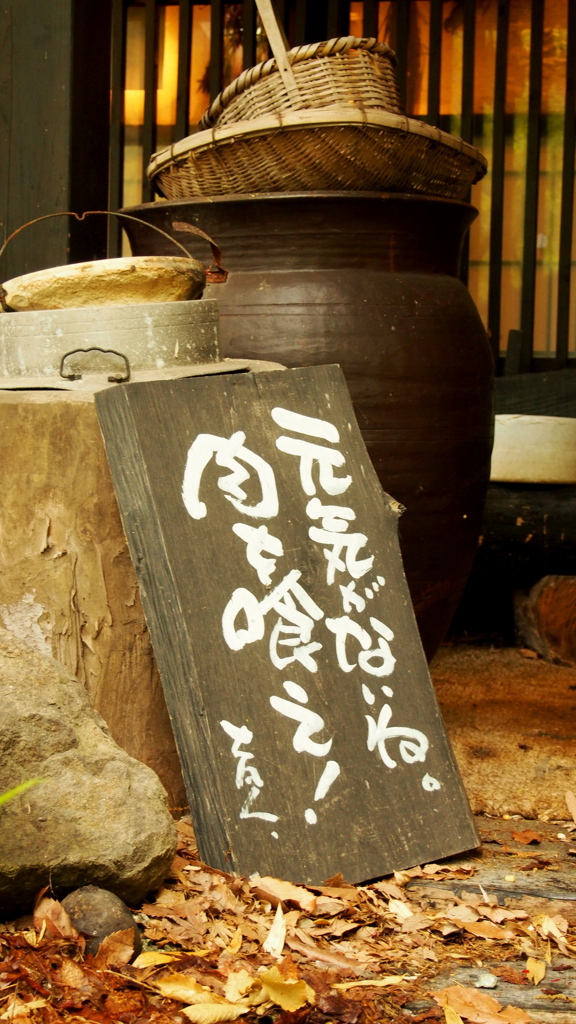 元気がないね。
肉を喰え!